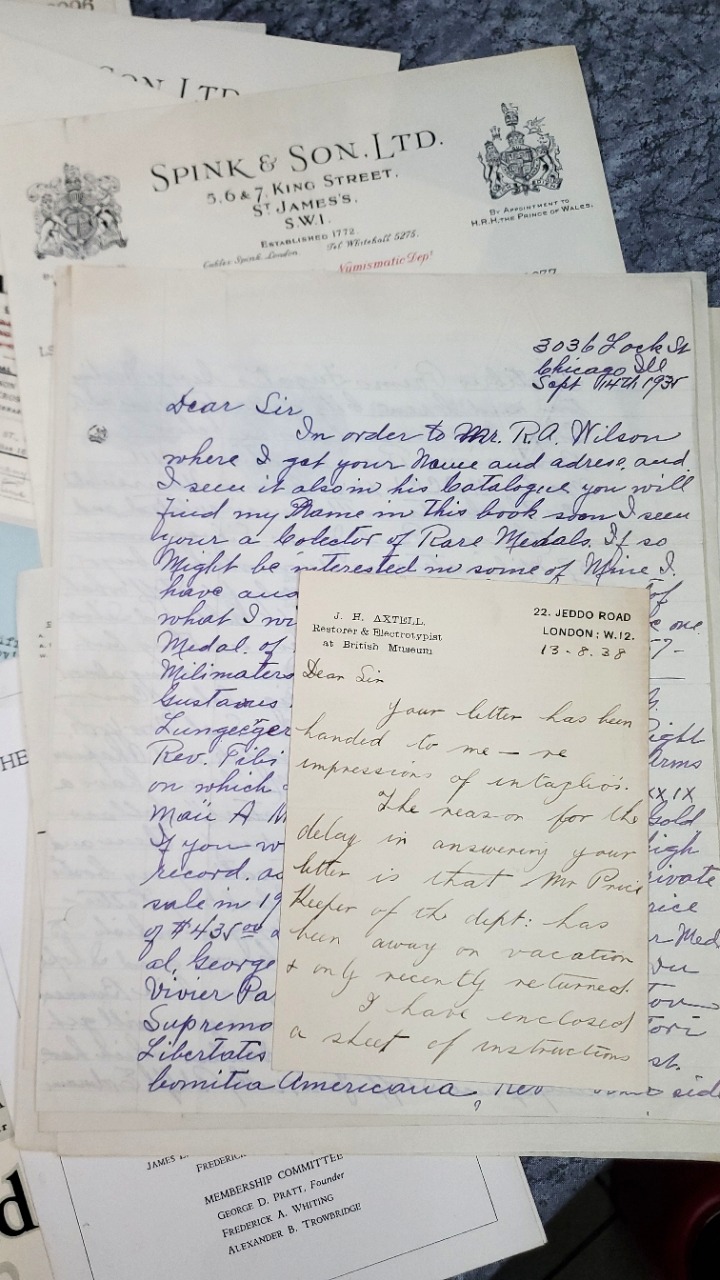 SON LTD
SPINK & SON. LTD.
5, 6 & 7, KING STREET,
ST JAMES'S,
S.W.1.
ESTABLISHED 1772
Cables Spink. London. Tel Whitehall 5275.
Numismatic Dept
BY APPOINTMENT TO
H.R.H. THE PRINCE OF WALES.
3036 Lock St
Chicago Ill
Sept 14th 1935
Dear Sir
In order to Mr. R.A. Wilson
where I got your Name and adress, and
I seen it also in his Catalogue you will
find my Name in this book soon I seen
your a Colector of Rare Medals. If so
Might be interested in some of Mine I.
have of
what I one
Medal. of 7-
Milimaters
Gustavus
ight
Rev. erms
on which XXIX
A Gold
If you igh
record. rivate
sale in 19 rice
of $435.00 Med
al, George
Vivier Pa
Supremo
Libertatis st.
Comitia Americana, Rev side
J. H. AXTELL.
Restorer & Electrotypist
at British Museum
22. JEDDO ROAD
LONDON: W.12.
13-8.38
Dear Sir
Your letter has been
handed to me — re
impressions of intaglios.
The reason for the
delay in answering your
letter is that Mr Price
Keeper of the dept: has
been away on vacation
& only recently returned.
I have enclosed
a sheet of instructions
HE
d
JAMES
FREDERIC
MEMBERSHIP COMMITTEE
GEORGE D. PRATT, Founder
FREDERICK A. WHITING
ALEXANDER B. TROWBRIDGE